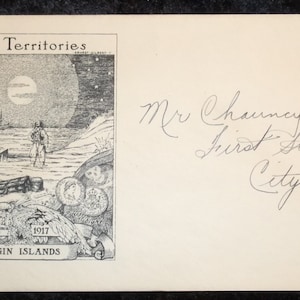 Territories
1917
GIN ISLANDS
Mr Chauncey
First
City